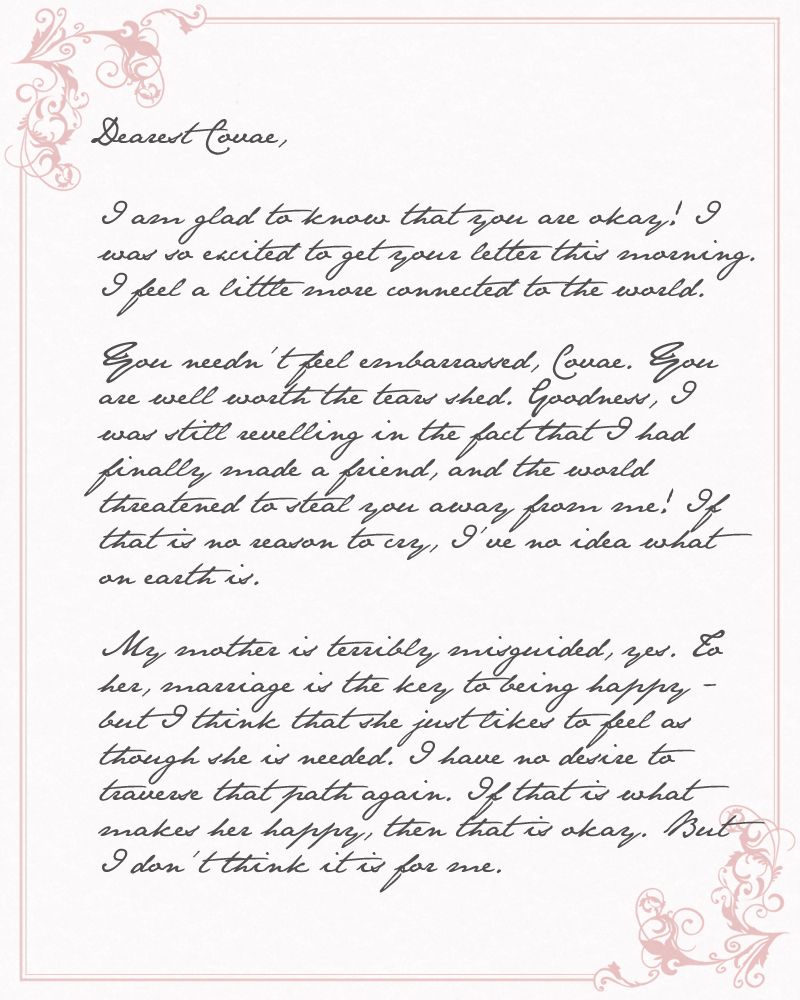 Dearest Covae,
I am glad to know that you are okay! I
was so excited to get your letter this morning.
I feel a little more connected to the world.
You needn't feel embarrassed, Covae. You
are well worth the tears shed. Goodness, I
was still revelling in the fact that I had
finally made a friend, and the world
threatened to steal you away from me! If
that is no reason to cry, I've no idea what
on earth is.
My mother is terribly misguided, yes. To
her, marriage is the key to being happy -
but I think that she just likes to feel as
though she is needed. I have no desire to
traverse that path again. If that is what
makes her happy, then that is okay. But
I don't think it is for me.